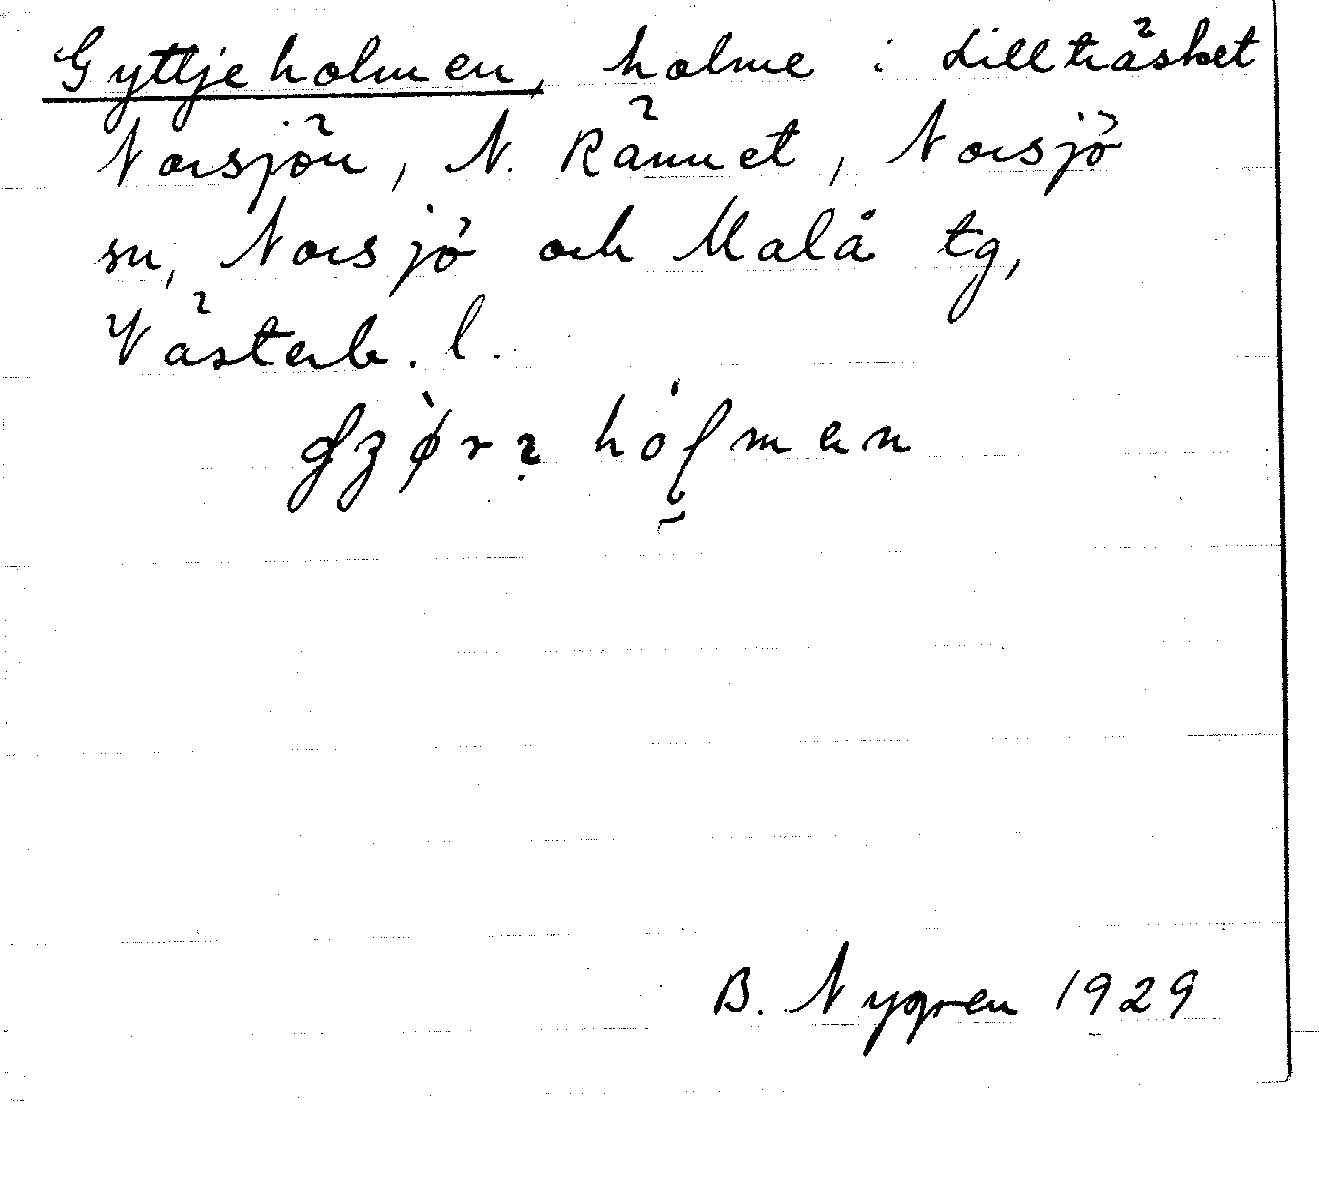 Gyttjeholmen, holme i Lillträsket
Norsjön, N. Rännet, Norsjö
sn, Norsjö och Malå tg,
Västerb. l.
B. Nygren 1929